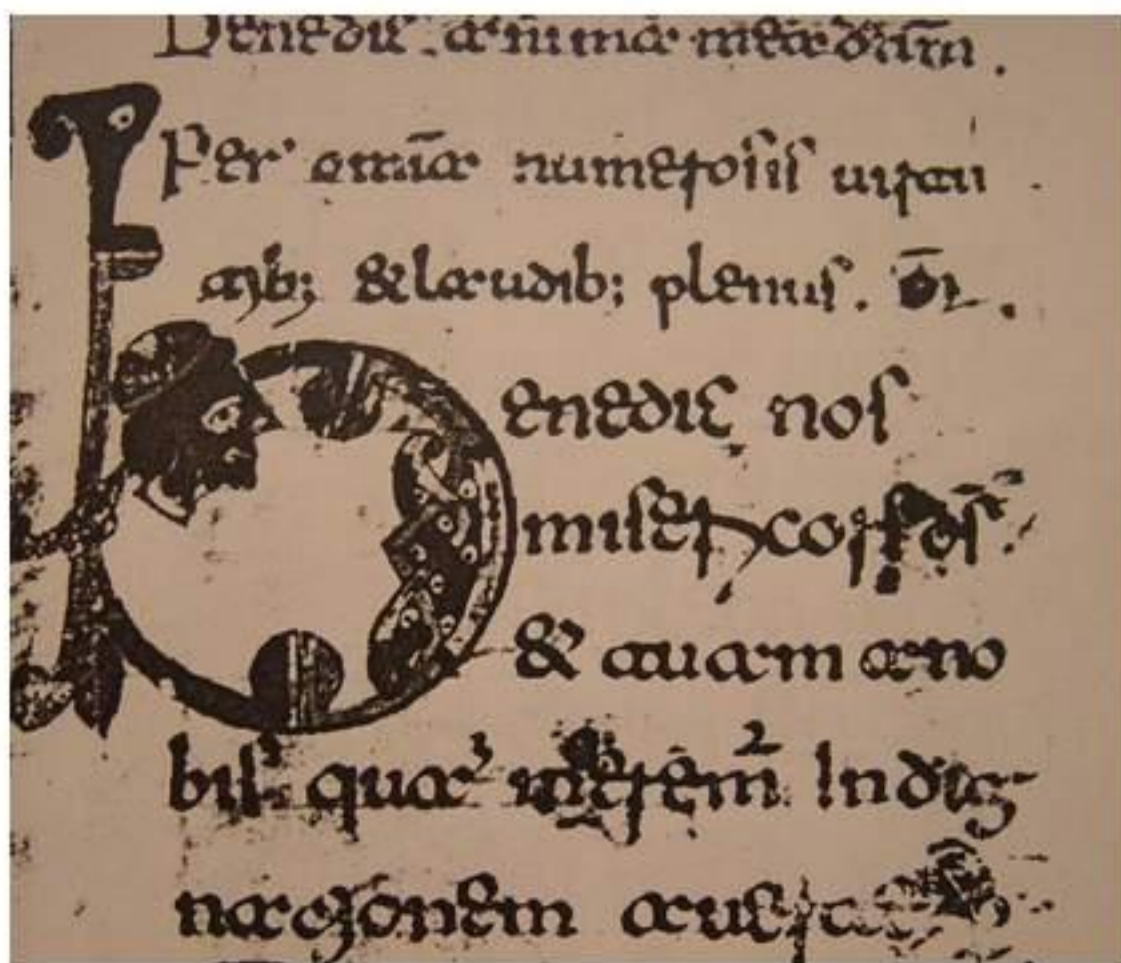 Benedic anima mea dñm.
Per omīa numerosis uirtu
tib; & laudib; plenus. Or̄.
Benedic nos
misericors d̄s
& tuam a no
bis quā merem̄ indig
nationem auerte